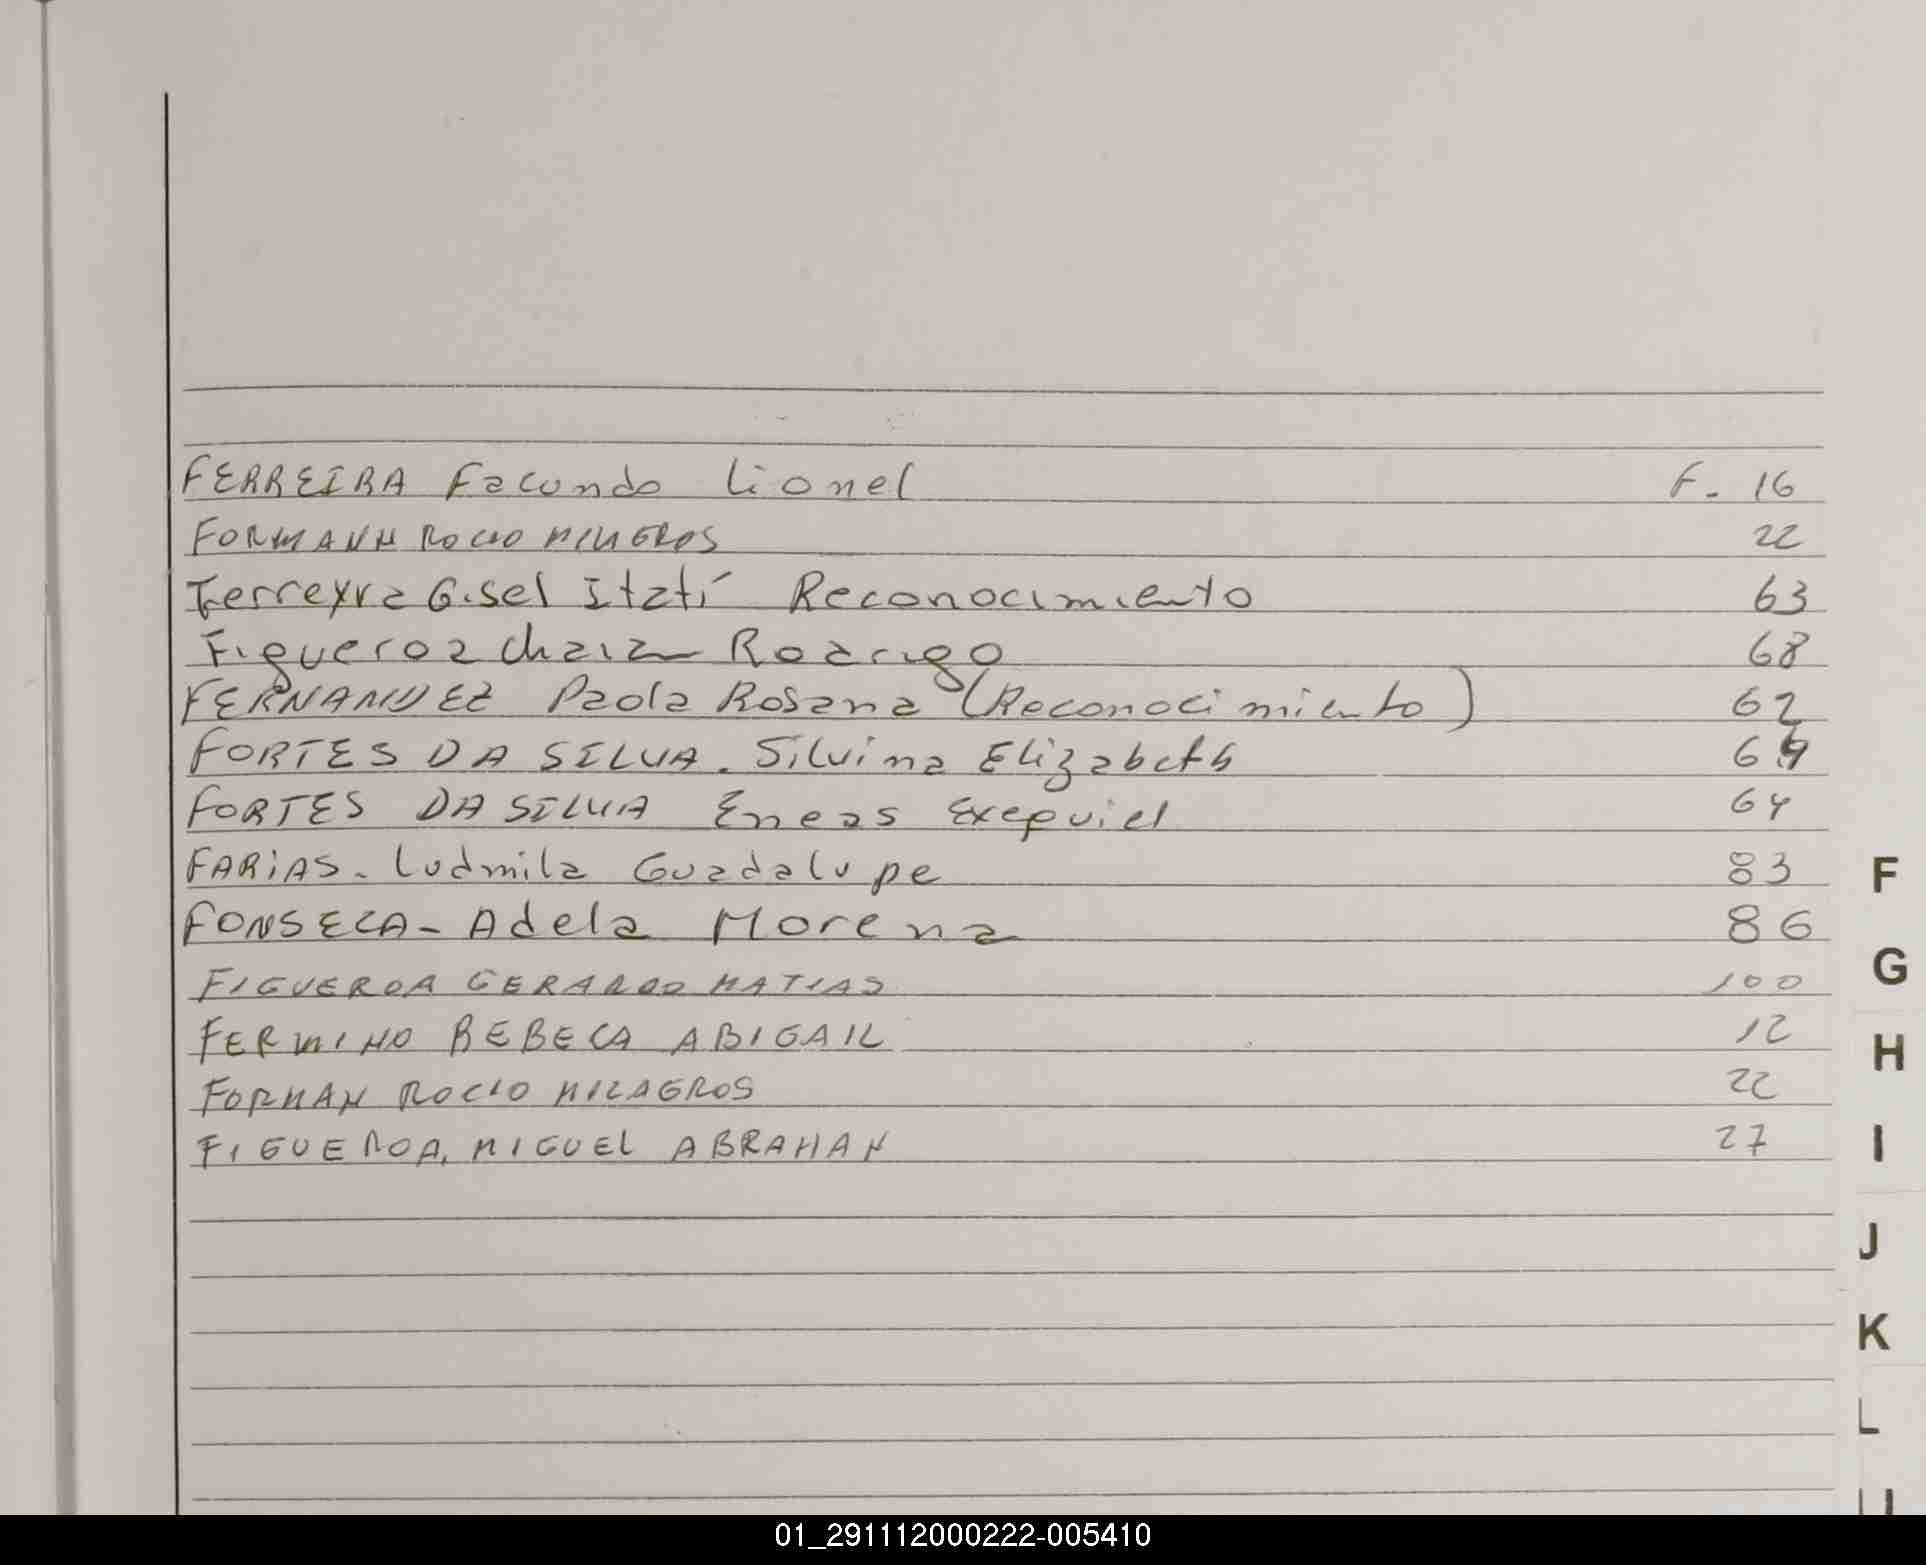 FERREIRA Facundo Lionel F. 16
FORMANN ROCIO MILAGROS 22
Ferreyra Gisel Itatí Reconocimiento 63
Figueroa Rodrigo 68
FERNANDEZ Paola Rosana (Reconocimiento) 62
FORTES DA SILVA. Silvina Elizabeth 64
FORTES DA SILVA Eneas Exequiel 64
FARiAS. Ludmila Guadalupe 83
FONSECA- Adela Morena 86
FIGUEROA GERARDO MATIAS 100
FERMINO REBECA ABIGAIL 12
FORMAN ROCIO MILAGROS 22
FIGUEROA, MIGUEL ABRAHAN 27
F
G
H
I
J
K
L
01_291112000222-005410